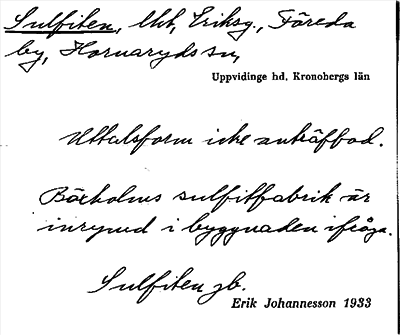 Sulfiten, lht, Eriksg., Föreda
by, Hornaryds sn,
Uppvidinge hd, Kronobergs län
Uttalsform icke anträffad.
Böksholms sulfitfabrik är
inrymd i byggnaden ifråga.
Sulfiten gb.
Erik Johannesson 1933